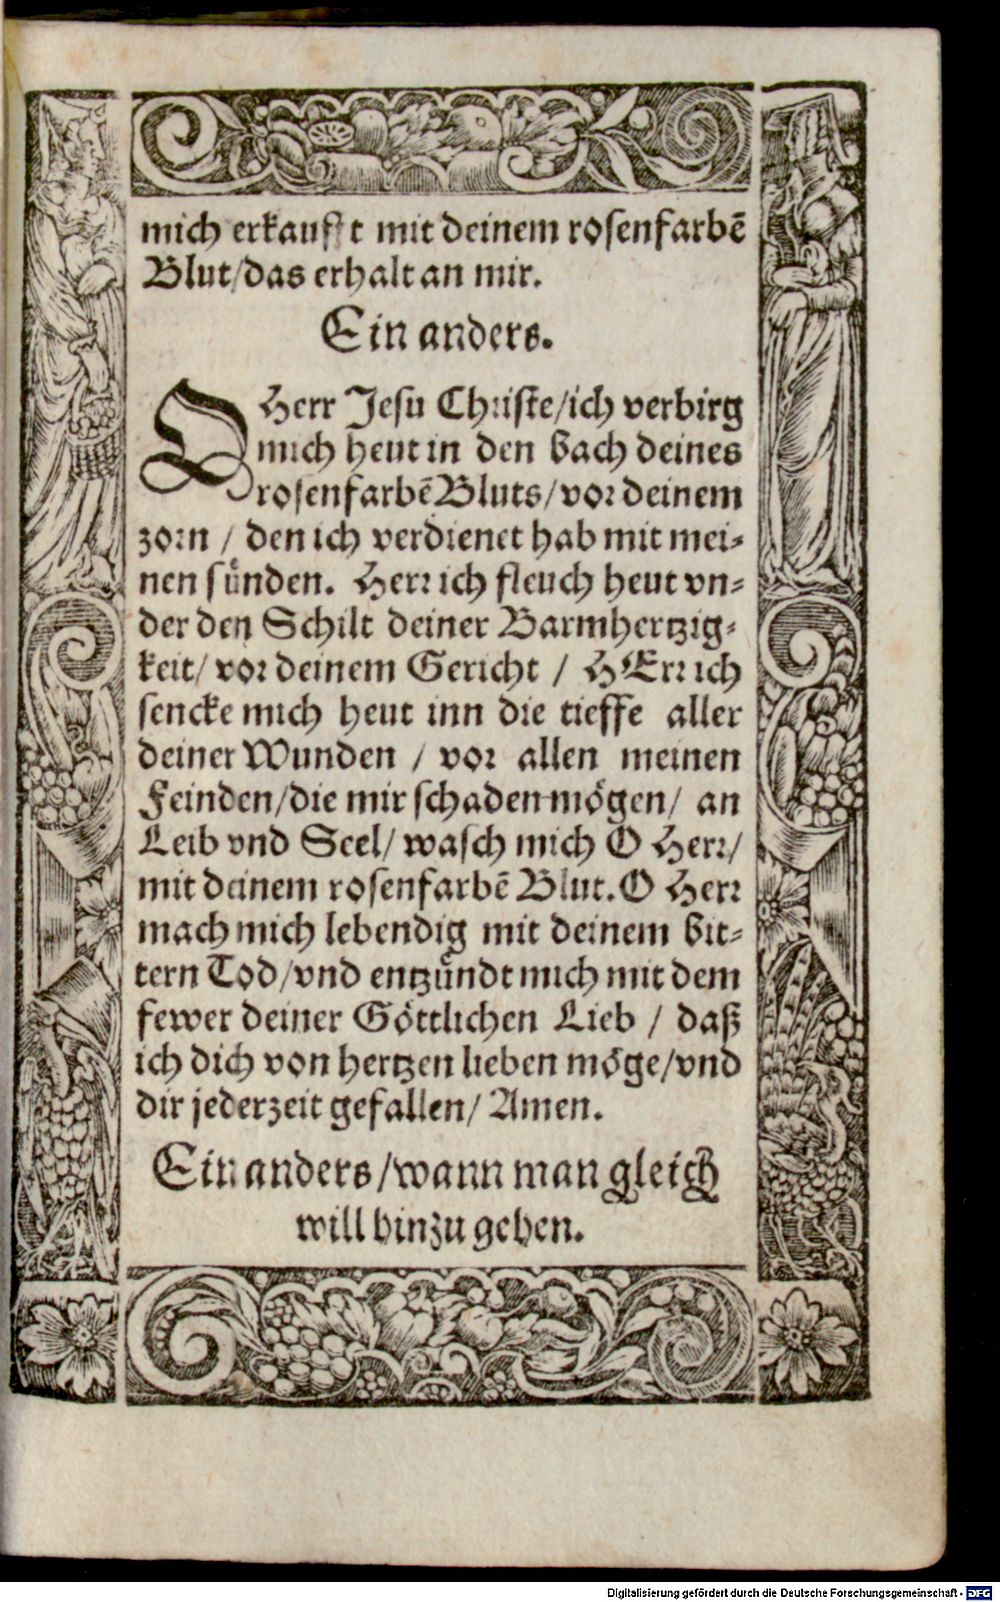 mich erkaufft mit deinem rosenfarbē
Blut/das erhalt an mir.
Ein anders.
O Herr Jesu Christe/ich verbirg
mich heut in den bach deines
rosenfarbē Bluts/vor deinem
zorn / den ich verdienet hab mit mei-
nen sünden. Herr ich fleuch heut vn-
der den Schilt deiner Barmhertzig-
keit/ vor deinem Gericht / HErr ich
sencke mich heut inn die tieffe aller
deiner Wunden / vor allen meinen
Feinden/die mir schaden mögen/ an
Leib vnd Seel/ wasch mich O Herr/
mit deinem rosenfarbē Blut. O Herr
mach mich lebendig mit deinem bit-
tern Tod/vnd entzündt mich mit dem
fewer deiner Göttlichen Lieb / daß
ich dich von hertzen lieben möge/vnd
dir jederzeit gefallen/ Amen.
Ein anders/wann man gleich
will hinzu gehen.
Digitalisierung gefördert durch die Deutsche Forschungsgemeinschaft - DFG